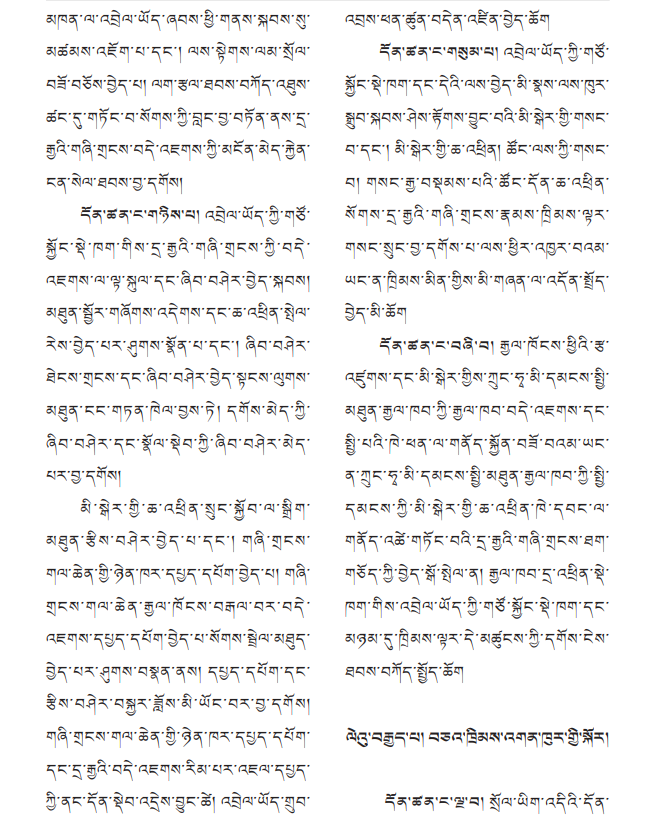 མཁན་ལ་འབྲེལ་ཡོད་ཞབས་ཕྱི་གནས་སྐབས་སུ་
མཚམས་འཇོག་པ་དང་། ལས་སྟེགས་ལམ་སྲོལ་
བཟོ་བཅོས་བྱེད་པ། ལག་རྩལ་ཐབས་བཀོད་འཐུས་
ཚང་དུ་གཏོང་བ་སོགས་ཀྱི་བླང་བྱ་བཏོན་ནས་དྲ་
རྒྱའི་གཞི་གྲངས་བདེ་འཇགས་ཀྱི་མངོན་མེད་རྐྱེན་
ངན་སེལ་ཐབས་བྱ་དགོས།
དོན་ཚན་ང་གཉིས་པ། འབྲེལ་ཡོད་ཀྱི་གཙོ་
སྐྱོང་སྡེ་ཁག་གིས་དྲ་རྒྱའི་གཞི་གྲངས་ཀྱི་བདེ་
འཇགས་ལ་ལྟ་སྐུལ་དང་ཞིབ་བཤེར་བྱེད་སྐབས།
མཐུན་སྦྱོར་གཞོགས་འདེགས་དང་ཆ་འཕྲིན་སྤེལ་
རེས་བྱེད་པར་ཤུགས་སྣོན་པ་དང་། ཞིབ་བཤེར་
ཐེངས་གྲངས་དང་ཞིབ་བཤེར་བྱེད་སྟངས་ལུགས་
མཐུན་ངང་གཏན་ཁེལ་བྱས་ཏེ། དགོས་མེད་ཀྱི་
ཞིབ་བཤེར་དང་སྣོལ་སྡེབ་ཀྱི་ཞིབ་བཤེར་མེད་
པར་བྱ་དགོས།
མི་སྒེར་གྱི་ཆ་འཕྲིན་སྲུང་སྐྱོབ་ལ་སྒྲིག་
མཐུན་རྩིས་བཤེར་བྱེད་པ་དང་། གཞི་གྲངས་
གལ་ཆེན་གྱི་ཉེན་ཁར་དཔྱད་དཔོག་བྱེད་པ། གཞི་
གྲངས་གལ་ཆེན་རྒྱལ་ཁོངས་བརྒལ་བར་བདེ་
འཇགས་དཔྱད་དཔོག་བྱེད་པ་སོགས་སྦྲེལ་མཐུད་
བྱེད་པར་ཤུགས་བསྣན་ནས། དཔྱད་དཔོག་དང་
རྩིས་བཤེར་བསྐྱར་ཟློས་མི་ཡོང་བར་བྱ་དགོས།
གཞི་གྲངས་གལ་ཆེན་གྱི་ཉེན་ཁར་དཔྱད་དཔོག་
དང་དྲ་རྒྱའི་བདེ་འཇགས་རིམ་པར་འཇལ་དཔྱད་
ཀྱི་ནང་དོན་སྡེབ་འདྲེས་བྱུང་ཚེ། འབྲེལ་ཡོད་གྲུབ་
འབྲས་ཕན་ཚུན་བདེན་འཛིན་བྱེད་ཆོག
དོན་ཚན་ང་གསུམ་པ། འབྲེལ་ཡོད་ཀྱི་གཙོ་
སྐྱོང་སྡེ་ཁག་དང་དེའི་ལས་བྱེད་མི་སྣས་ལས་ཁུར་
སྒྲུབ་སྐབས་ཤེས་རྟོགས་བྱུང་བའི་མི་སྒེར་གྱི་གསང་
བ་དང་། མི་སྒེར་གྱི་ཆ་འཕྲིན། ཚོང་ལས་ཀྱི་གསང་
བ། གསང་རྒྱ་བསྡམས་པའི་ཚོང་དོན་ཆ་འཕྲིན་
སོགས་དྲ་རྒྱའི་གཞི་གྲངས་རྣམས་ཁྲིམས་ལྟར་
གསང་སྲུང་བྱ་དགོས་པ་ལས་ཕྱིར་འཁྱར་བའམ་
ཡང་ན་ཁྲིམས་མིན་གྱིས་མི་གཞན་ལ་འདོན་སྤྲོད་
བྱེད་མི་ཆོག
དོན་ཚན་ང་བཞི་བ། རྒྱལ་ཁོངས་ཕྱིའི་རྩ་
འཛུགས་དང་མི་སྒེར་གྱིས་ཀྲུང་ཧྭ་མི་དམངས་སྤྱི་
མཐུན་རྒྱལ་ཁབ་ཀྱི་རྒྱལ་ཁབ་བདེ་འཇགས་དང་
སྤྱི་པའི་ཁེ་ཕན་ལ་གནོད་སྐྱོན་བཟོ་བའམ་ཡང་
ན་ཀྲུང་ཧྭ་མི་དམངས་སྤྱི་མཐུན་རྒྱལ་ཁབ་ཀྱི་སྤྱི་
དམངས་ཀྱི་མི་སྒེར་གྱི་ཆ་འཕྲིན་ཁེ་དབང་ལ་
གནོད་འཚེ་གཏོང་བའི་དྲ་རྒྱའི་གཞི་གྲངས་ཐག་
གཅོད་ཀྱི་བྱེད་སྒོ་སྤེལ་ན། རྒྱལ་ཁབ་དྲ་འཕྲིན་སྡེ་
ཁག་གིས་འབྲེལ་ཡོད་ཀྱི་གཙོ་སྐྱོང་སྡེ་ཁག་དང་
མཉམ་དུ་ཁྲིམས་ལྟར་དེ་མཚུངས་ཀྱི་དགོས་ངེས་
ཐབས་བཀོད་སྤྱོད་ཆོག
ལེའུ་བརྒྱད་པ། བཅའ་ཁྲིམས་འགན་ཁུར་གྱི་སྐོར།
དོན་ཚན་ང་ལྔ་བ། སྲོལ་ཡིག་འདིའི་དོན་